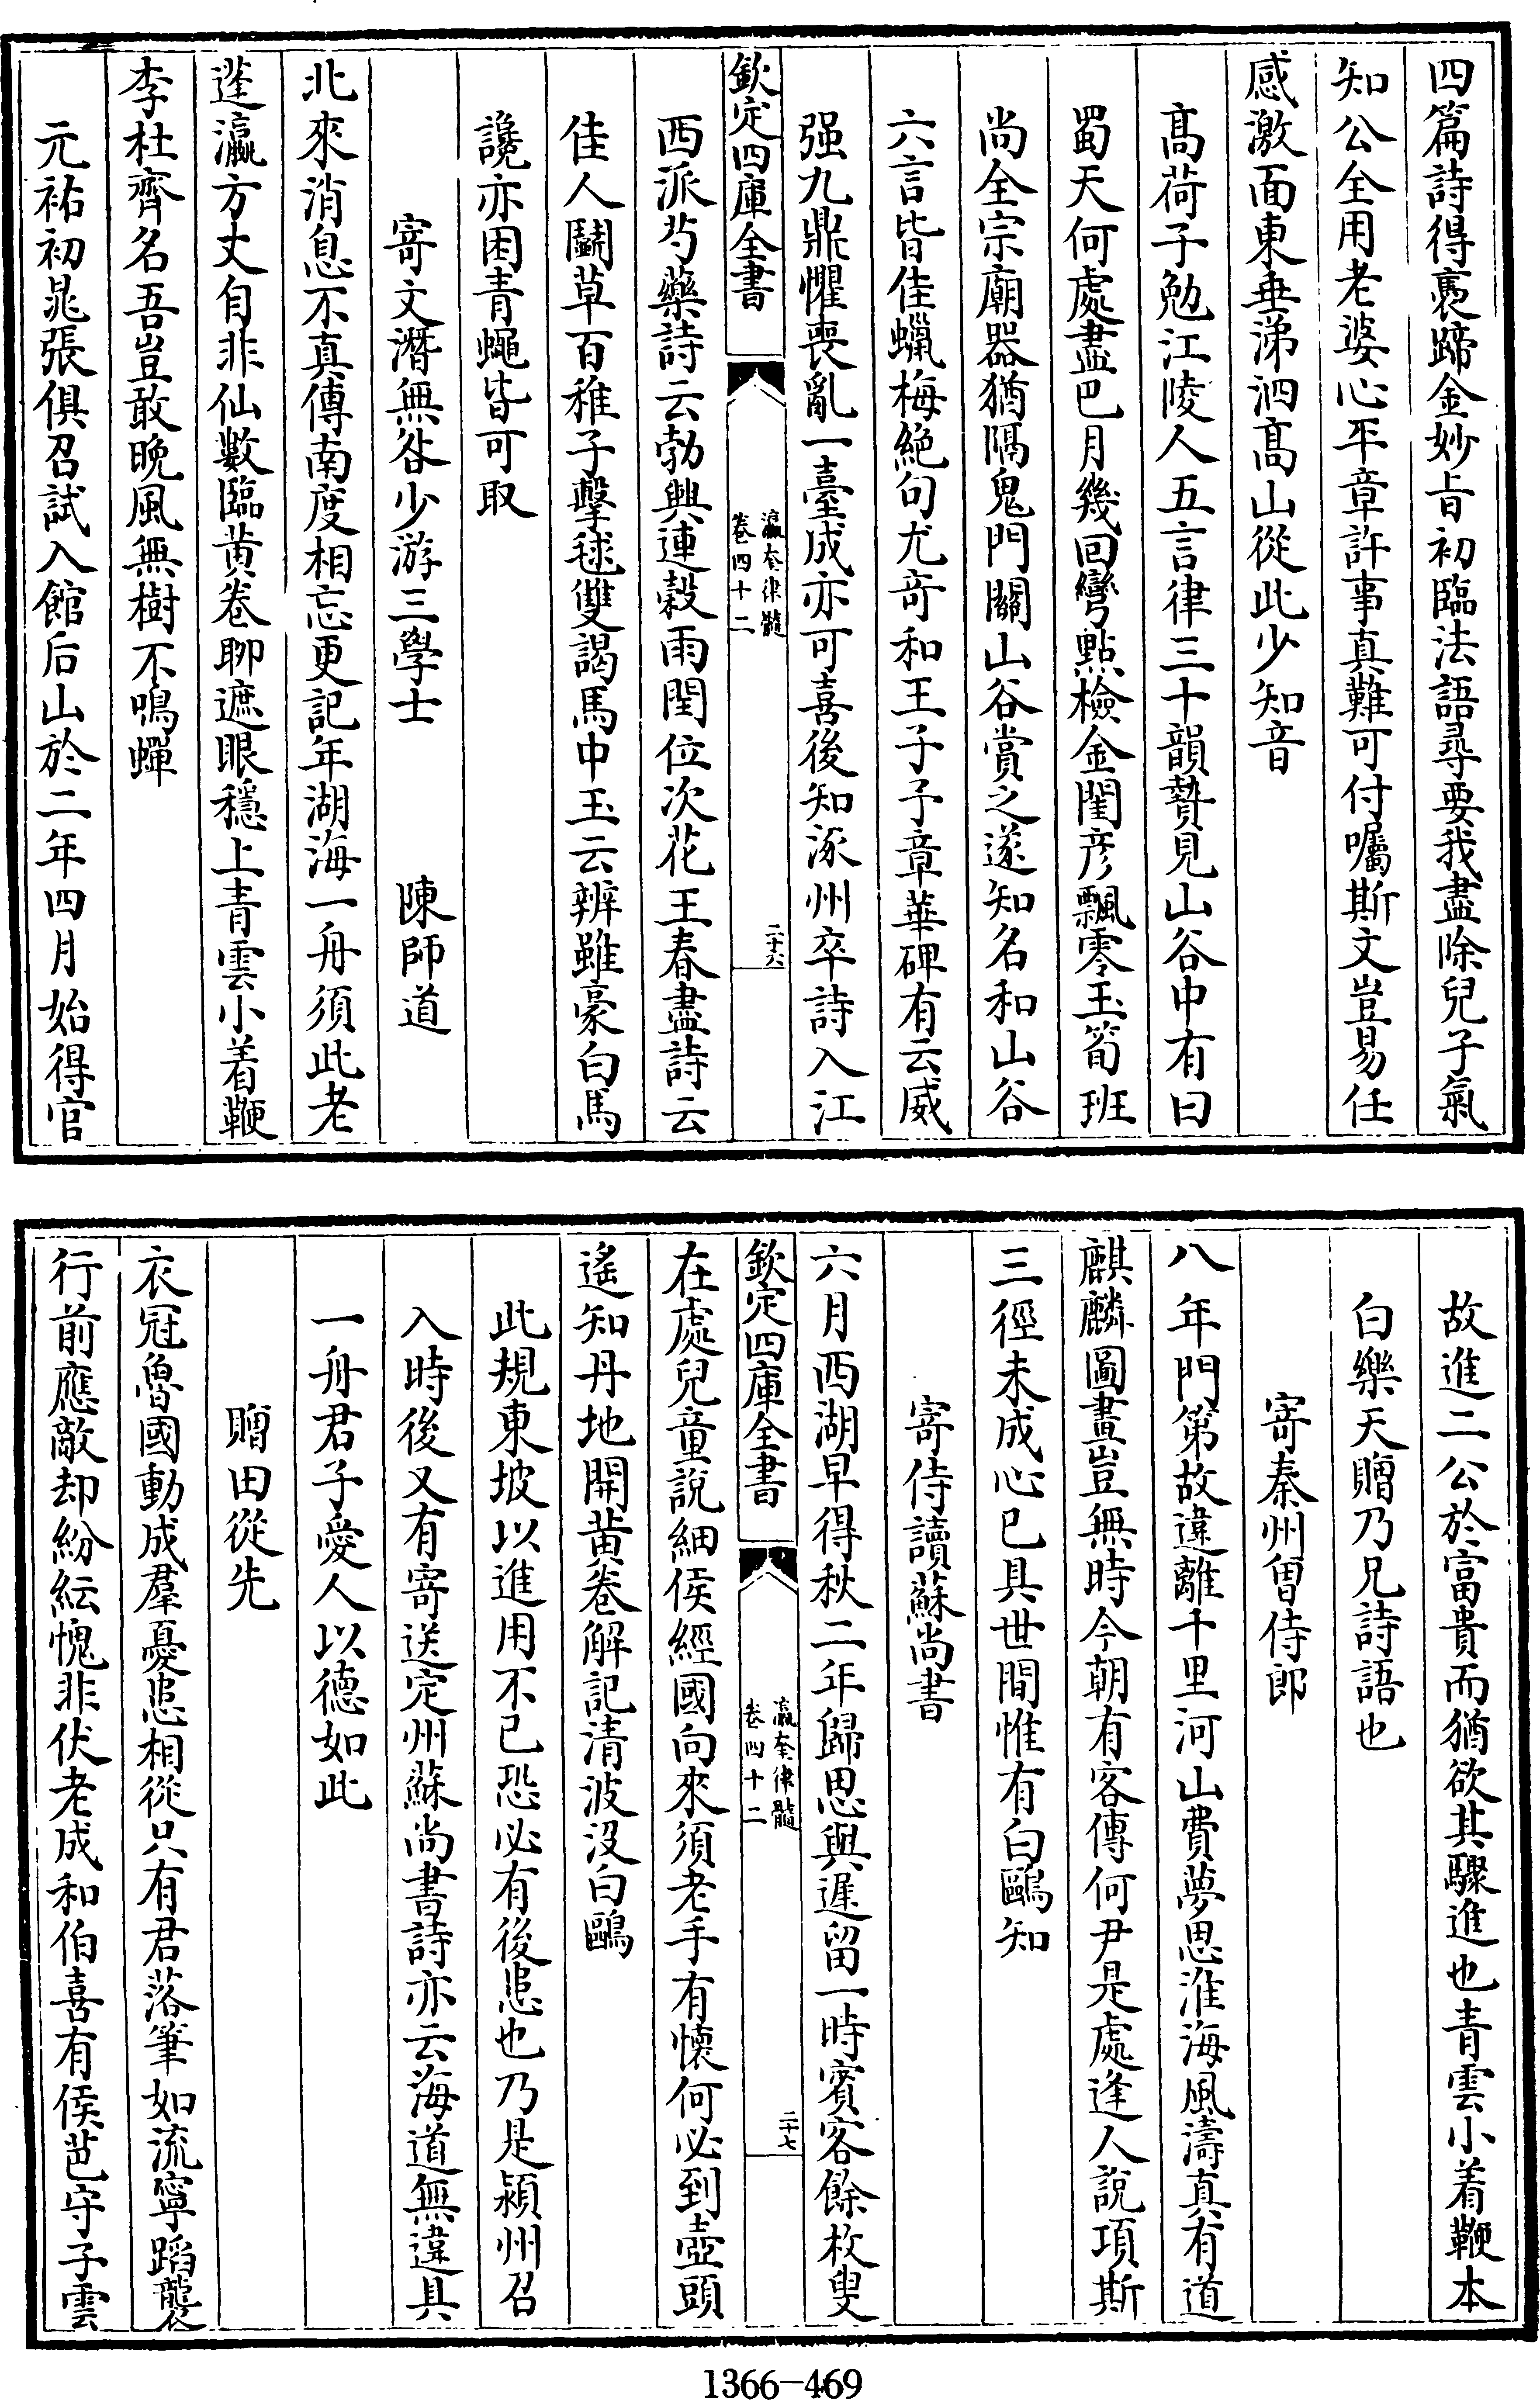 四篇詩得褭蹄金妙旨初臨法語尋要我盡除兒子氣
知公全用老婆心平章許事真難可付囑斯文豈易任
感激面東垂涕泗髙山從此少知音
髙荷子勉江陵人五言律三十韻贄見山谷中有曰
蜀天何處盡巴月幾回彎點檢金閨彦飄零玉筍班
尚全宗廟器猶隔鬼門關山谷賞之遂知名和山谷
六言皆佳蠟梅絶句尤竒和王子予章華碑有云威
强九鼎懼喪亂一臺成亦可喜後知涿州卒詩入江
欽定四庫全書
瀛奎律髓
卷四十二
二十六
西派芍藥詩云勃興連榖雨閏位次花王春盡詩云
佳人鬭草百稚子擊毬雙謁馬中玉云辨雖豪白馬
讒亦困青蠅皆可取
寄文潛無咎少游三學士
陳師道
北來消息不真傳南度相忘更記年湖海一舟須此老
蓬瀛方丈自非仙數臨黄卷聊遮眼穩上青雲小着鞭
李杜齊名吾豈敢晚風無樹不鳴蟬
元祐初晁張俱召試入館后山於二年四月始得官
故進二公於富貴而猶欲其驟進也青雲小着鞭本
白樂天贈乃兄詩語也
寄秦州曽侍郎
八年門第故違離千里河山費夢思淮海風濤真有道
麒麟圖畫豈無時今朝有客傳何尹是處逢人說項斯
三徑未成心已具世間惟有白鷗知
寄侍讀蘇尚書
六月西湖早得秋二年歸思與遲留一時賓客餘枚叟
欽定四庫全書
瀛奎律髓
卷四十二
二十七
在處兒童說細侯經國向來須老手有懷何必到壺頭
遙知丹地開黄卷解記清波没白鷗
此規東坡以進用不已恐必有後患也乃是潁州召
入時後又有寄送定州蘇尚書詩亦云海道無違具
一舟君子愛人以德如此
贈田從先
衣冠魯國動成羣憂患相從只有君落筆如流寧蹈襲
行前應敵却紛紜愧非伏老成和伯喜有侯芭守子雲
1366-469